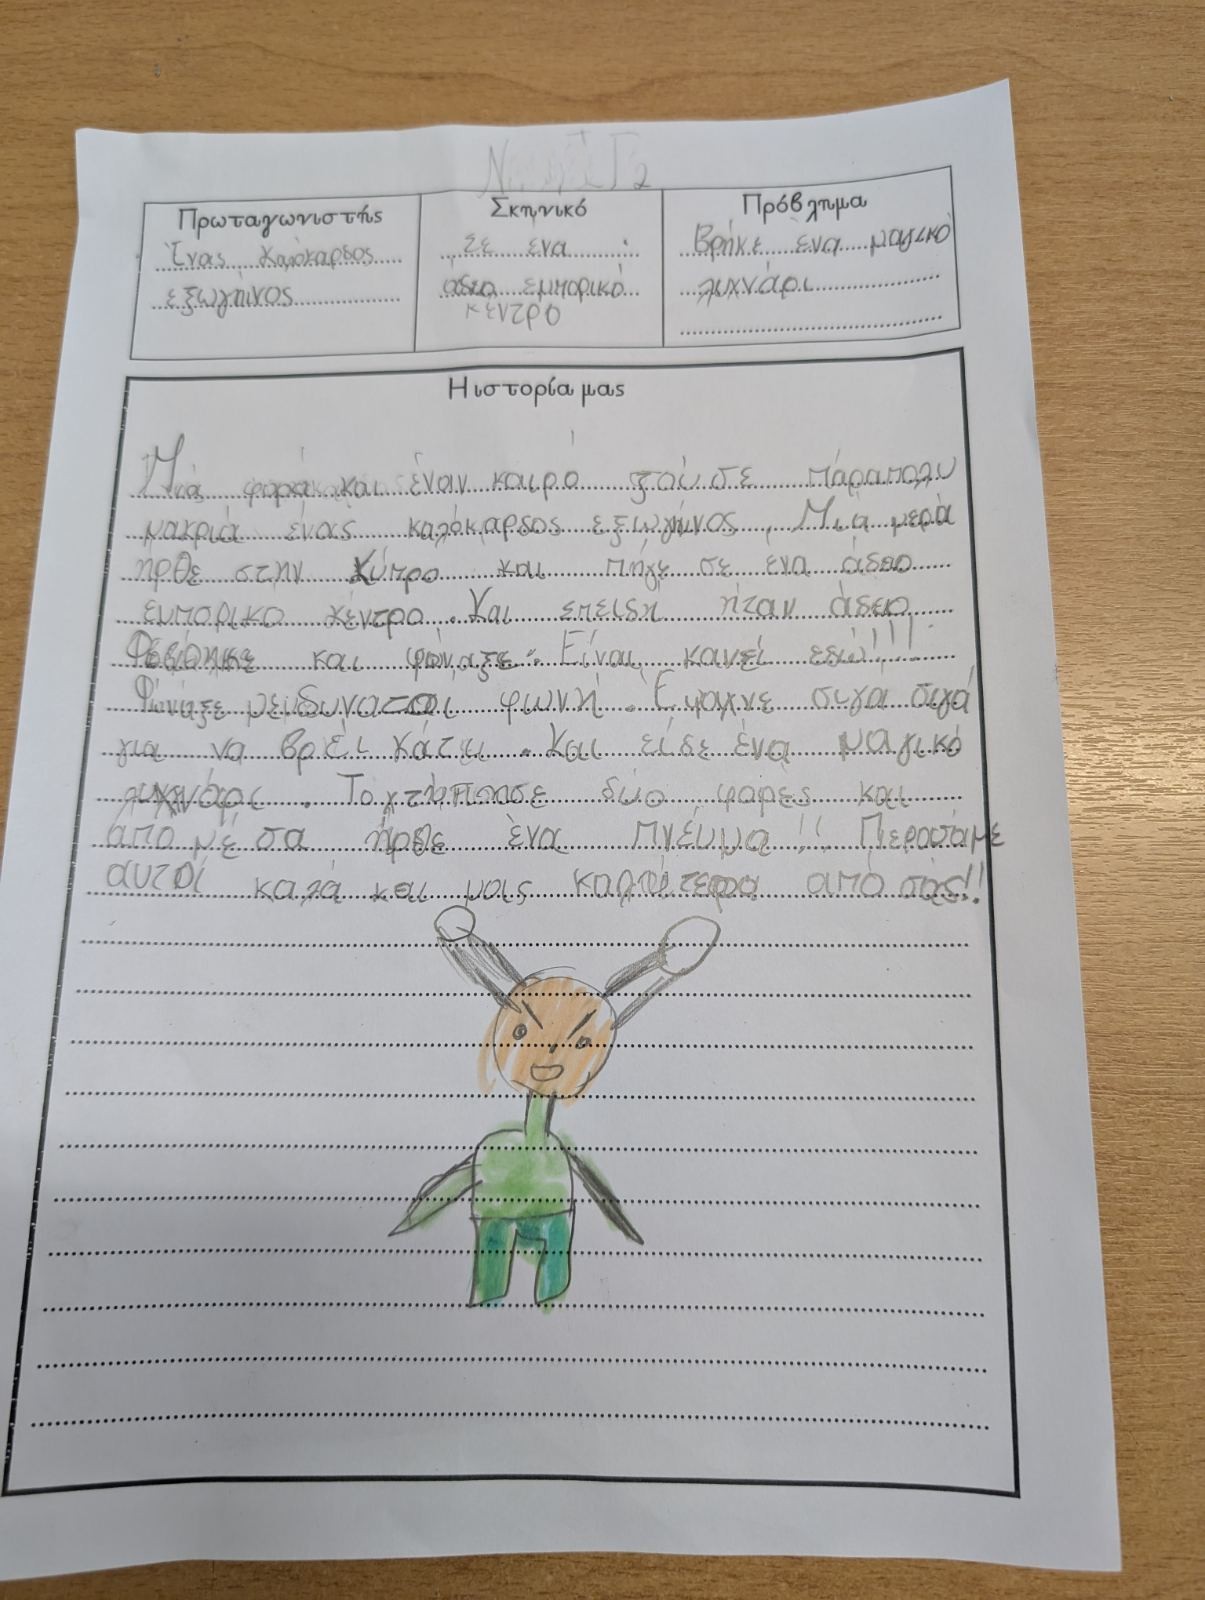 Γ2
Πρωταγωνιστής
Ένας καλόκαρδος
εξωγήινος
Σκηνικό
Σε ένα
άδειο εμπορικό
κέντρο
Πρόβλημα
Βρήκε ένα μαγικό
λυχνάρι
Η ιστορία μας
Μιά φορά και έναν καιρό ζούσε πάραπολυ
μακριά ένας καλόκαρδος εξωγήινος. Μιά μερά
ήρθε στην Κύπρο και πήγε σε ενα άδειο
εμπορικο κέντρο. Και επειδη ήταν άδειο
Φοβήθηκε και φώναξε: Είναι κανεί εδώ!!!!
Φώναξε με φωνή. Έψαχνε σιγα σιγά
για να βρεί κάτι. Και είδε ένα μαγικό
λυχνάρι. Το χτήπησε δύο φορές και
απο μέσα ήρθε ένα πνέυμα!! Περάσαμε
αυτοί καλά και μαις καλήτερα από σάς!!